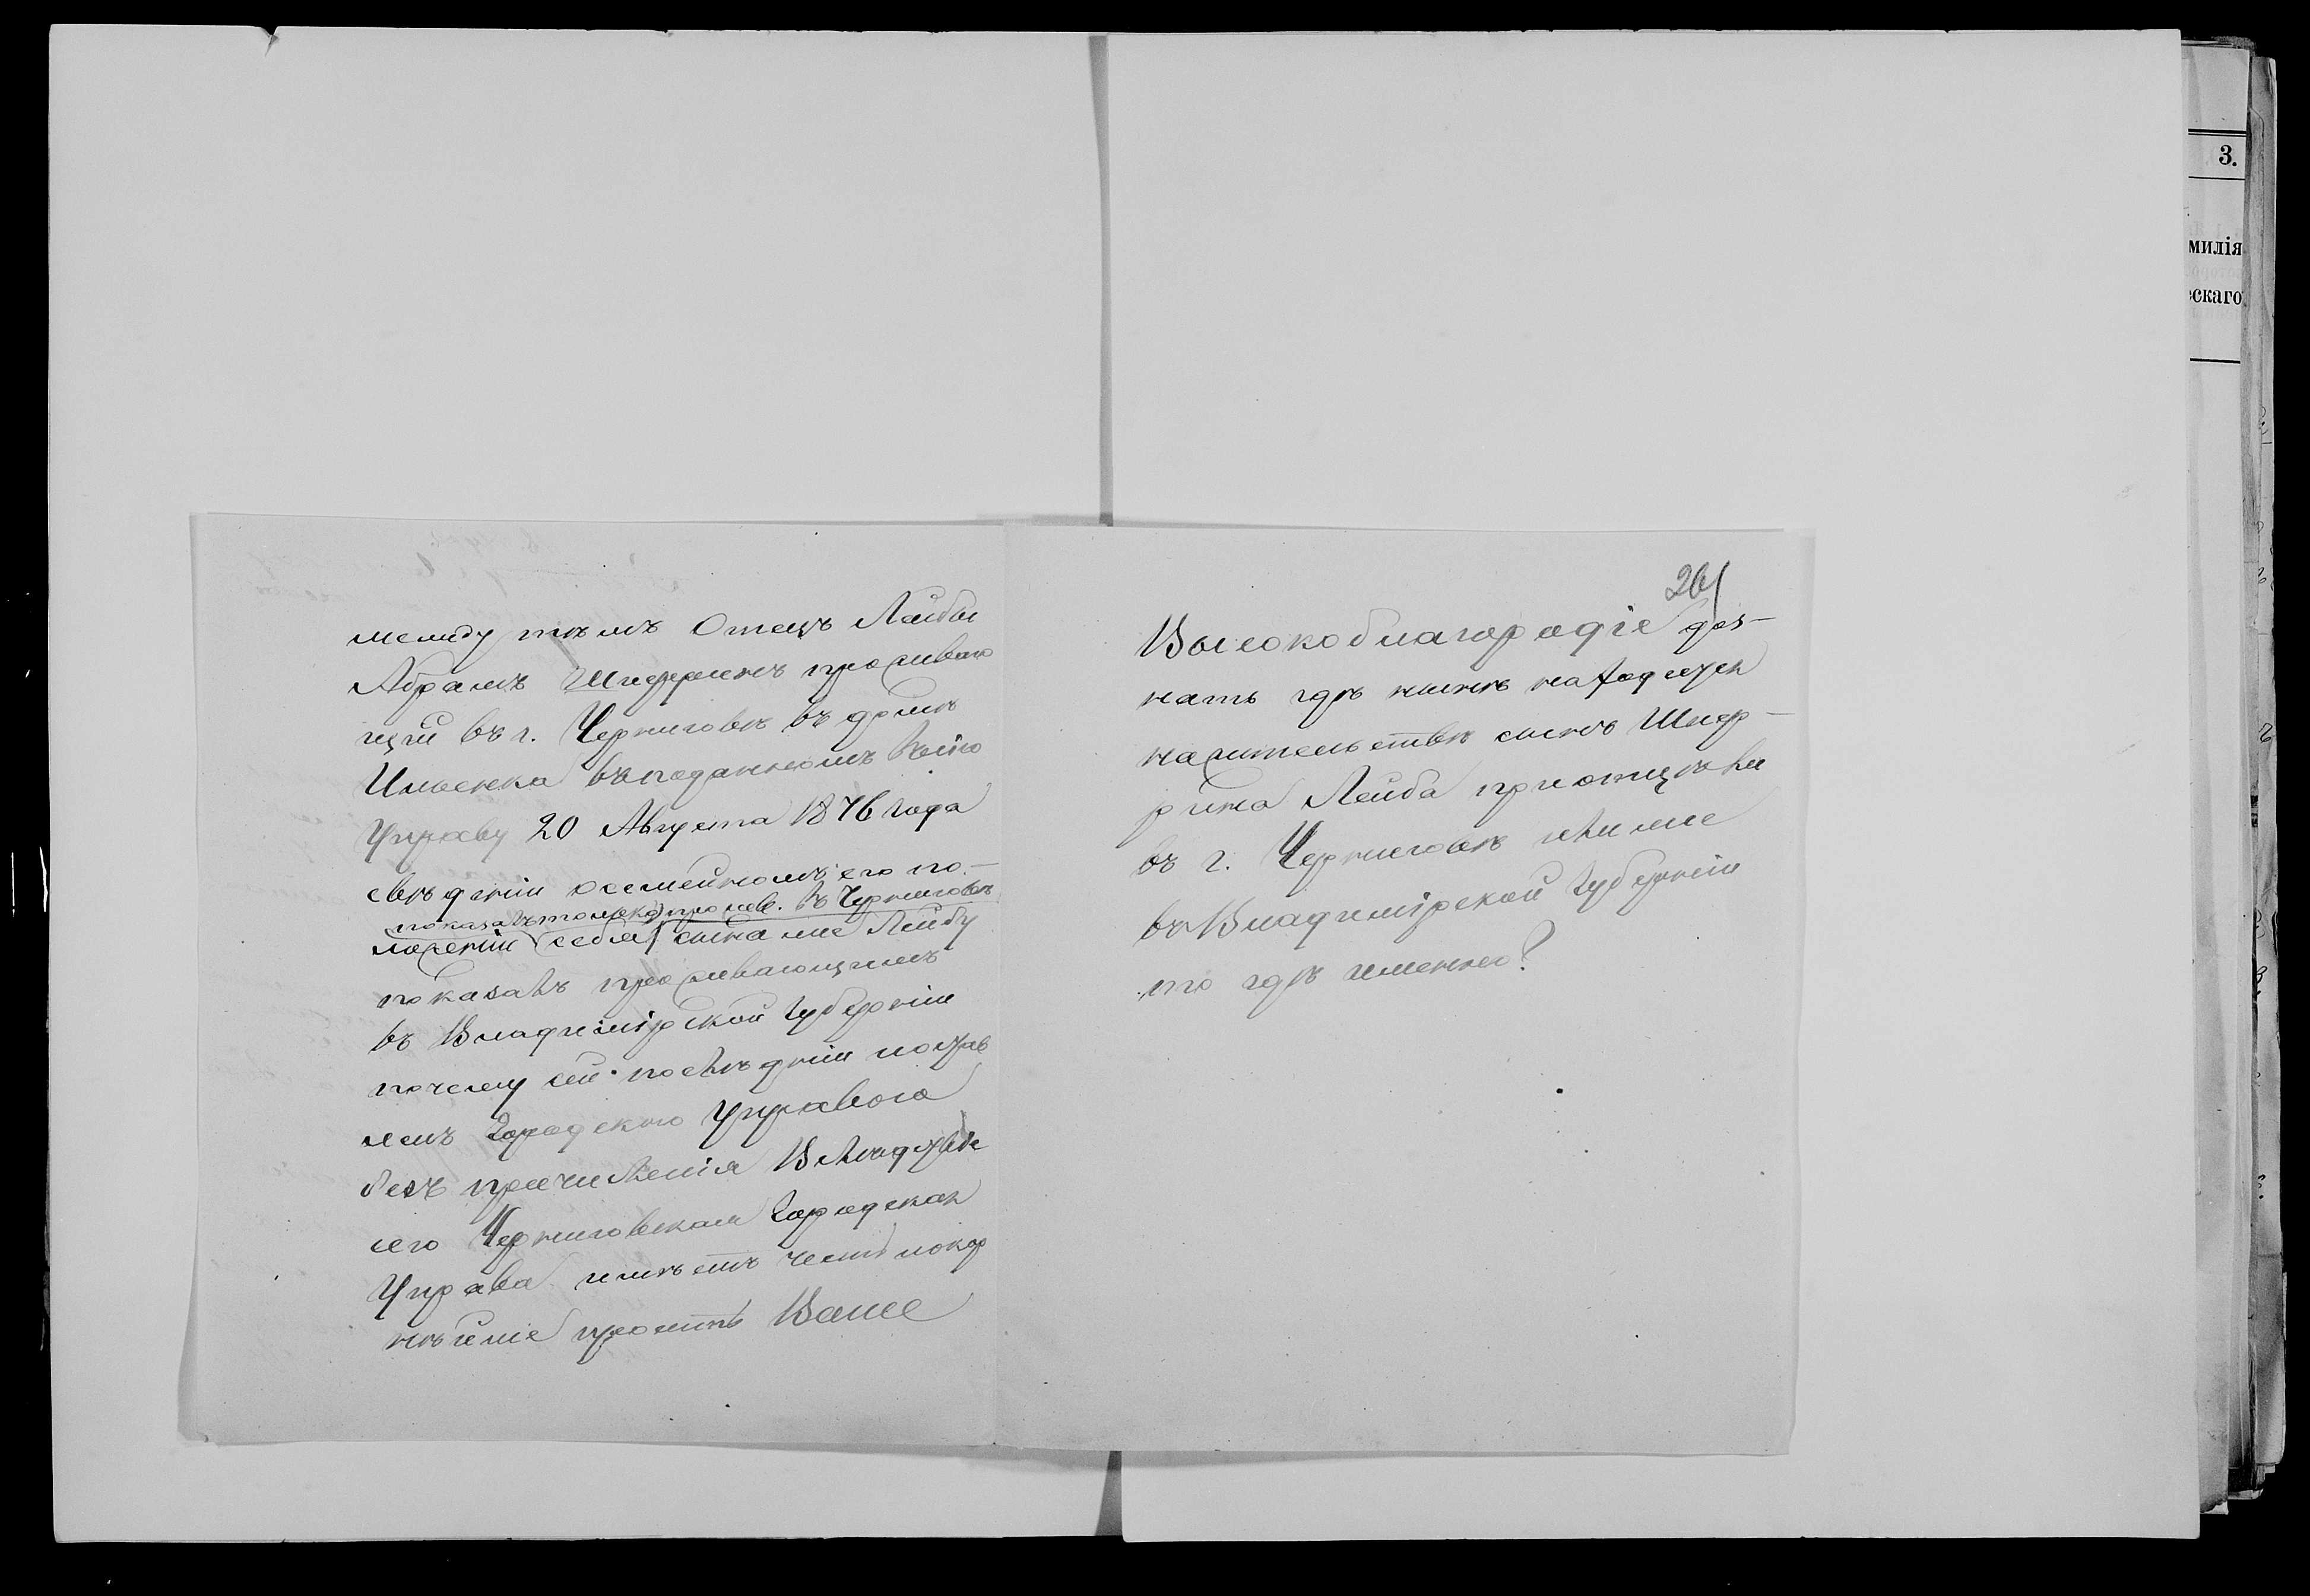 между тѣмъ Отецъ Лейбы
Абрамъ Шперлинъ проживаю
щій въ г. Черниговѣ въ домѣ
Ильенка въ поданномъ въ сію
Управу 20 Августа 1876 года
свѣденіи о семейномъ его по-
показалъ только прожив. въ Черниговѣ
ложеніи себя, сына же Лейбу
показалъ проживающимъ
въ Владимірской губерніи
почему сей послѣдній
Городскою Управою
безъ причисленія Вслѣдствіе
сего Черниговская Городская
Управа имѣетъ честь покор
нѣйше просить Ваше
261
Высокоблагородіе доз-
нать гдѣ нынѣ находится
на жительствѣ сынъ Шпер-
лина Лейба при отцѣ ли
въ г. Черниговѣ или же
въ Владимірской губерніи
то гдѣ именно?
3.
милія
ескаго